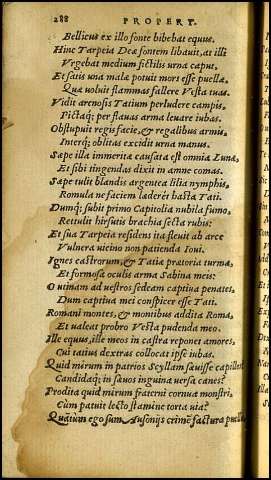 288 PROPERT.
Bellicus ex illo fonte bibebat equus.
Hinc Tarpeia Deæ fontem libauit, at illi
Vrgebat medium fictilis urna caput.
Et satis una malæ potuit mors esse puellæ,
Quæ uoluit flammas fallere Vesta tuas.
Vidit arenosis Tatium perludere campis,
Pictaq; per flauas arma leuare iubas.
Obstupuit regis facie, & regalibus armis,
Interq; oblitas excidit urna manus.
Sæpe illa immeritæ causata est omnia Lunæ,
Et sibi tingendas dixit in amne comas.
Sæpe tulit blandis argentea lilia nymphis,
Romulæ ne faciem læderet hasta Tati.
Dumq; subit primo Capitolia nubila fumo,
Retulit hirsutis brachia secta rubis:
Et sua Tarpeia residens ita fleuit ab arce
Vulnera uicino non patienda Ioui.
Ignes castrorum, & Tatiæ prætoria turmæ,
Et formosa oculis arma Sabina meis:
O utinam ad uestros sedeam captiua penates,
Dum captiua mei conspicer esse Tati.
Romani montes, & montibus addita Roma,
Et ualeat probro Vesta pudenda meo.
Ille equus, ille meos in castra reponet amores,
Cui tatius dextras collocat ipse iubas.
Quid mirum in patrios Scyllam sæuisse capillos?
Candidaq; in sæuos inguina uersa canes?
Prodita quid mirum fraterni cornua monstri,
Cùm patuit lecto stamine torta uia?
Quātum ego sum Ausonijs crimē factura puellis